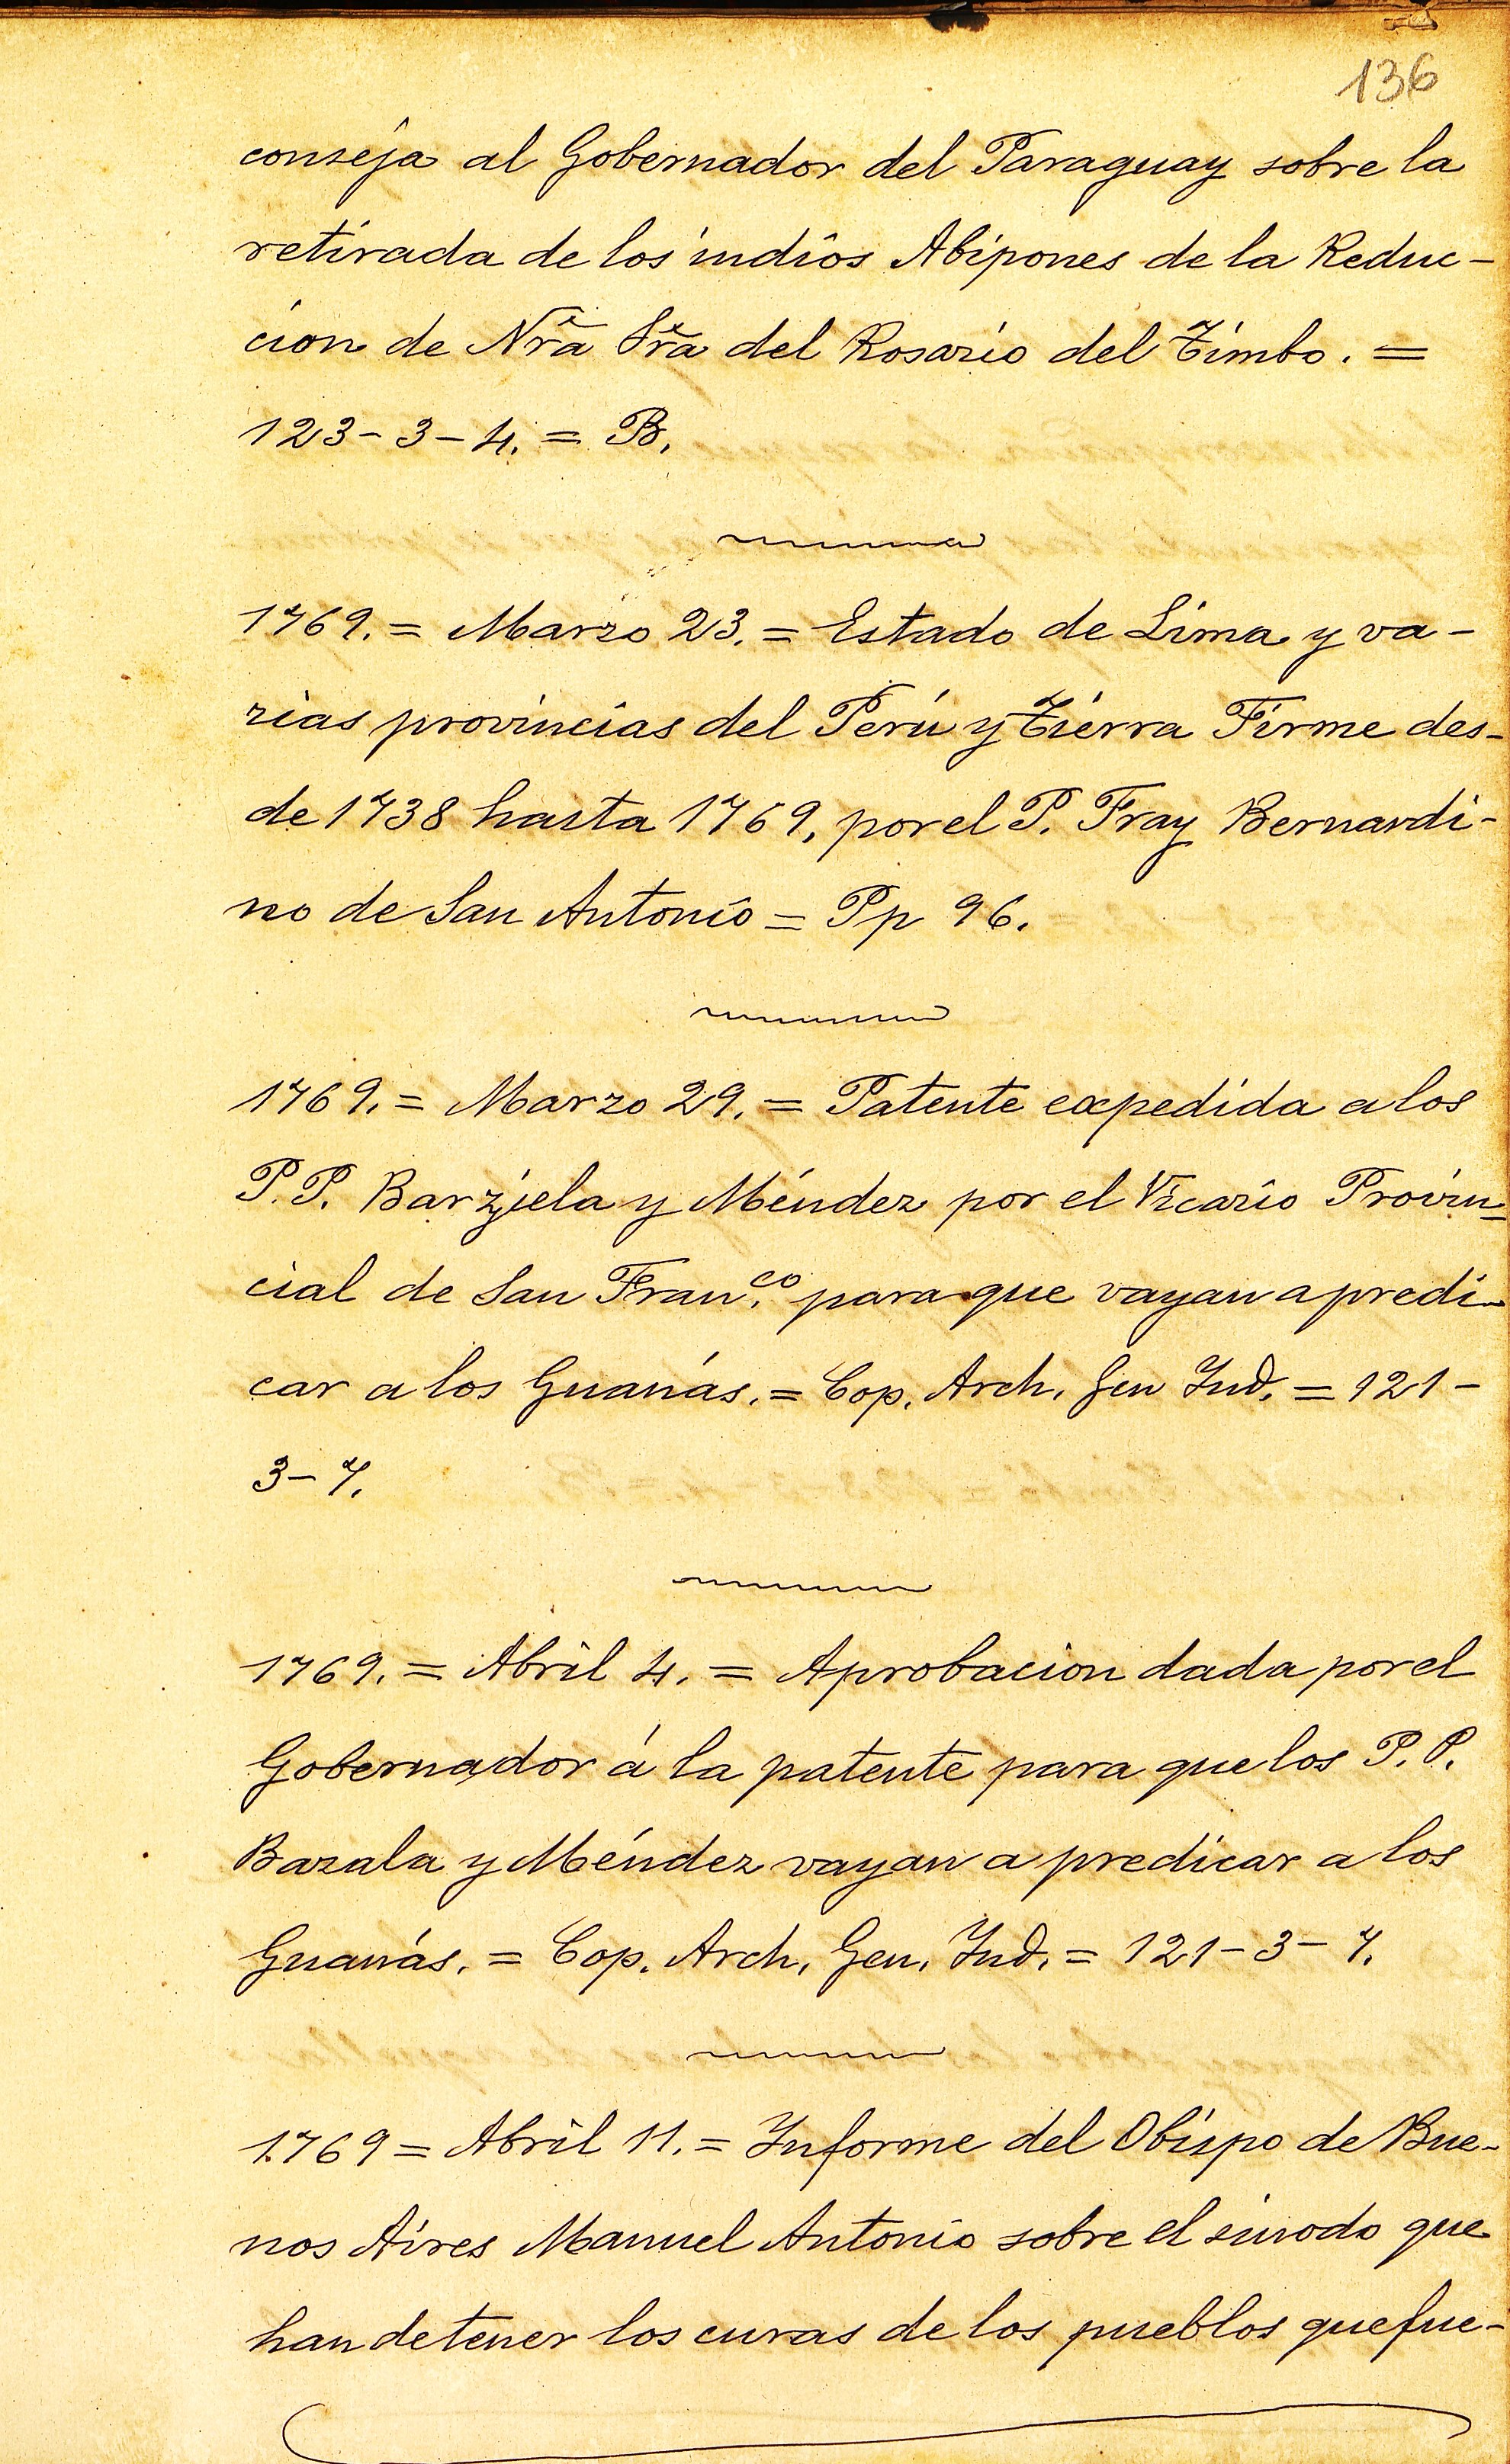 136
conseja al Gobernador del Paraguay sobre la
retirada de los indios Abipones de la Reduc-
cion de Nrã Srã del Rosario del Timbo. =
123-3-4. = B.
1769. = Marzo 23. = Estado de Lima y va-
rias provincias del Perú y Tierra Firme des-
de 1738 hasta 1769, por el P. Fray Bernardi-
no de San Antonio = Pp 96.
1769. = Marzo 29. = Patente expedida a los
P.P. Barzjela y Méndez por el Vicario Provin=
cial de San Fran.co para que vayan a predi-
car a los Guanás. = Cop. Arch. Gen Ind. = 121-
3-7.
1769. = Abril 4. = Aprobacion dada por el
Gobernador á la patente para que los P.P.
Bazala y Méndez vayan a predicar a los
Guanás. = Cop. Arch. Gen. Ind. = 121-3-7.
1769 = Abril 11. = Informe del Obispo de Bue-
nos Aires Manuel Antonio sobre el sinodo que
han de tener los curas de los pueblos que fue-